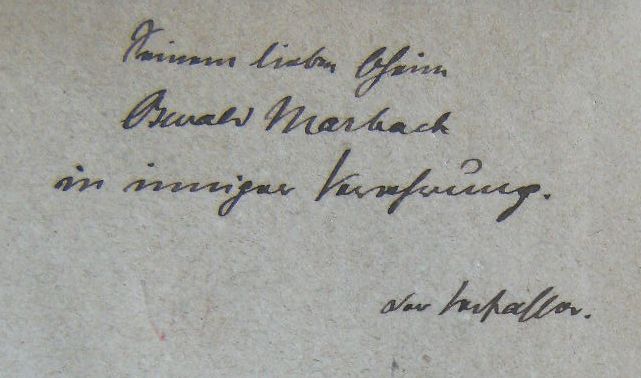 Seinem lieben Oheim
Oswald Marbach
in inniger Verehrung.
der Verfasser.